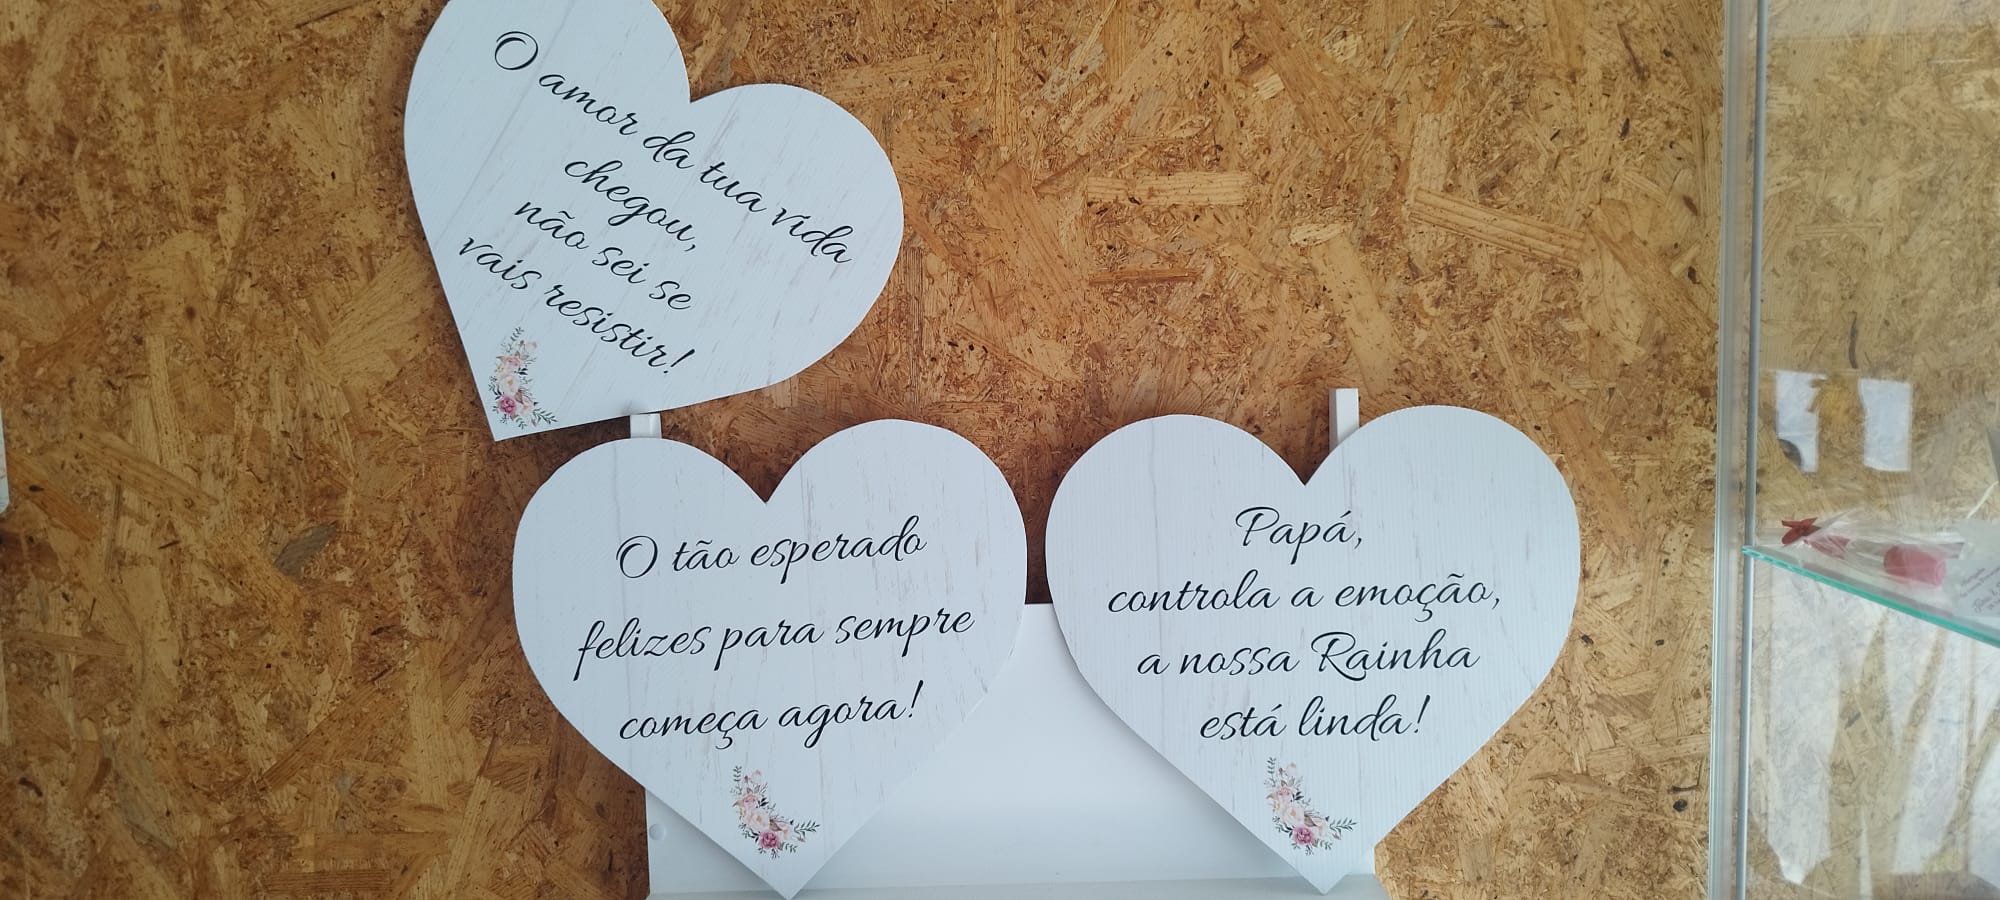 O amor da tua vida
chegou,
não sei se
vais resistir!
O tão esperado
felizes para sempre
começa agora!
Papá,
controla a emoção,
a nossa Rainha
está linda!